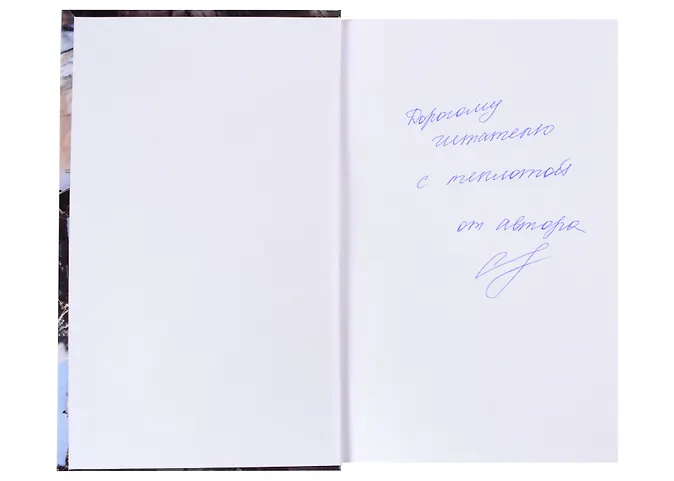 Дорогому
читателю
с теплотой
от автора